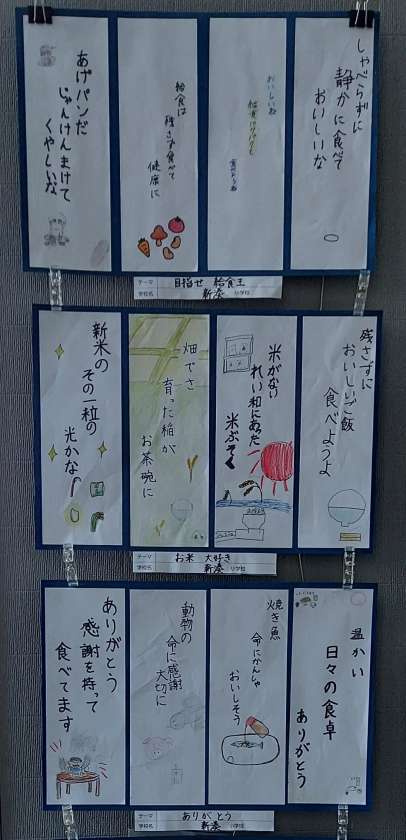 しゃべらずに
静かに食べて
おいしいな
おいしいね
給食は
残さず食べて
健康に
あげパンだ
じゃんけんまけて
くやしいな
テーマ 目指せ 給食王
学校名 新湊 小学校
残さずに
おいしいご飯
食べようよ
米がない
れい和にあった
米ぶそく
畑でさ
育った稲が
お茶碗に
新米の
その一粒の
光かな
テーマ お米 大好き
学校名 新湊 小学校
温かい
日々の食卓
ありがとう
焼き魚
命にかんしゃ
おいしそう
動物の
命に感謝
大切に
ありがとう
感謝を持って
食べてます
テーマ ありがとう
学校名 新湊 小学校